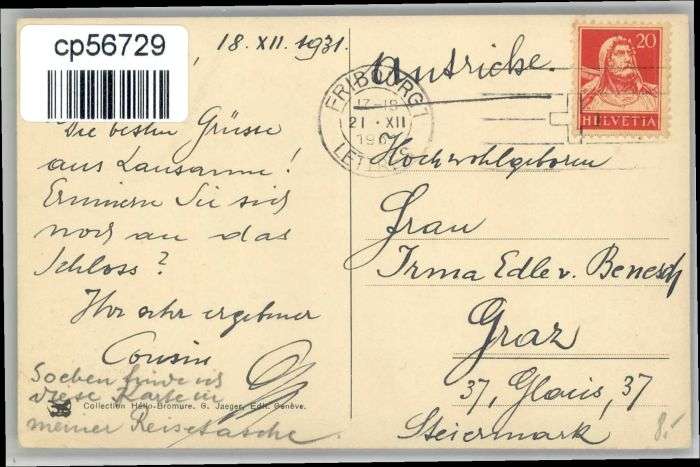 cp56729
, 18. XII. 1931.
Die besten Grüsse
aus Lausanne!
Erinnern Sie sich
noch an das
Schloss?
Ihr sehr ergebener
Cousin
Soeben finde ich
diese Karte in
meiner Reisetasche.
Collection Hélio-Bromure. G. Jaeger, Edit. Genève.
Autriche.
FRIBOURG 1
21 · XII
LETTRES
20
HELVETIA
Hochwohlgeboren
Frau
Irma Edle v. Benesch
Graz
37, Glacis, 37
Steiermark
8.-